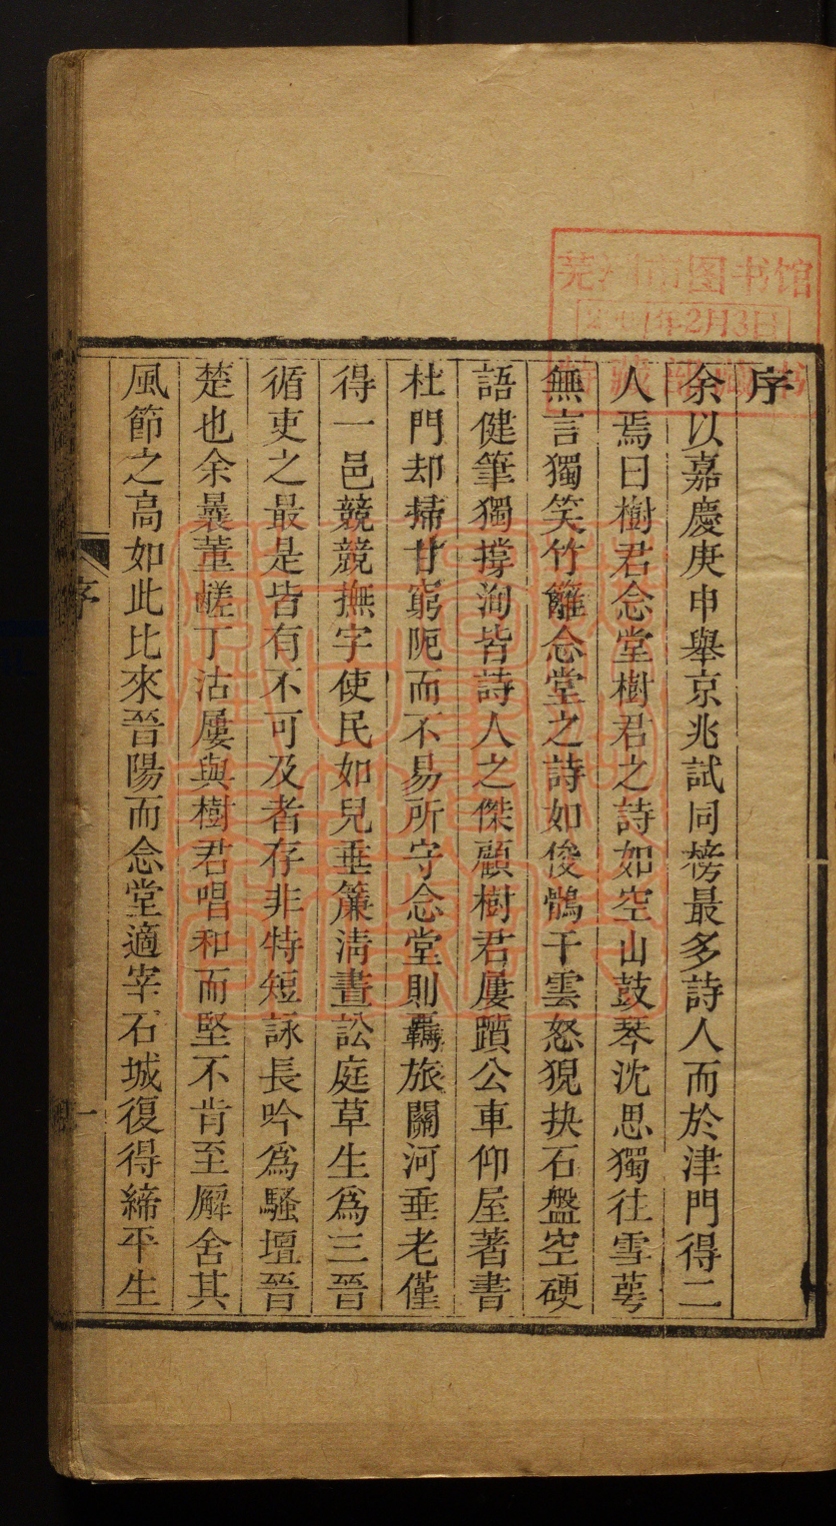 序
余以嘉慶庚申舉京兆試同榜最多詩人而於津門得二
人焉曰樹君念堂樹君之詩如空山鼓琴沈思獨往雪蕚
無言獨笑竹籬念堂之詩如俊鶻干雲怒猊抉石盤空硬
語健筆獨撐洵皆詩人之傑顧樹君屢躓公車仰屋著書
杜門却掃甘窮阨而不易所守念堂則羈旅關河垂老僅
得一邑兢兢撫字使民如兒垂簾淸晝訟庭草生爲三晉
循吏之最是皆有不可及者存非特短詠長吟爲騷壇晉
楚也余曩董鹺丁沽屢與樹君唱和而堅不肯至廨舍其
風節之高如此比來晉陽而念堂適宰石城復得締平生
序
一
芜湖市图书馆
年2月3日
藏